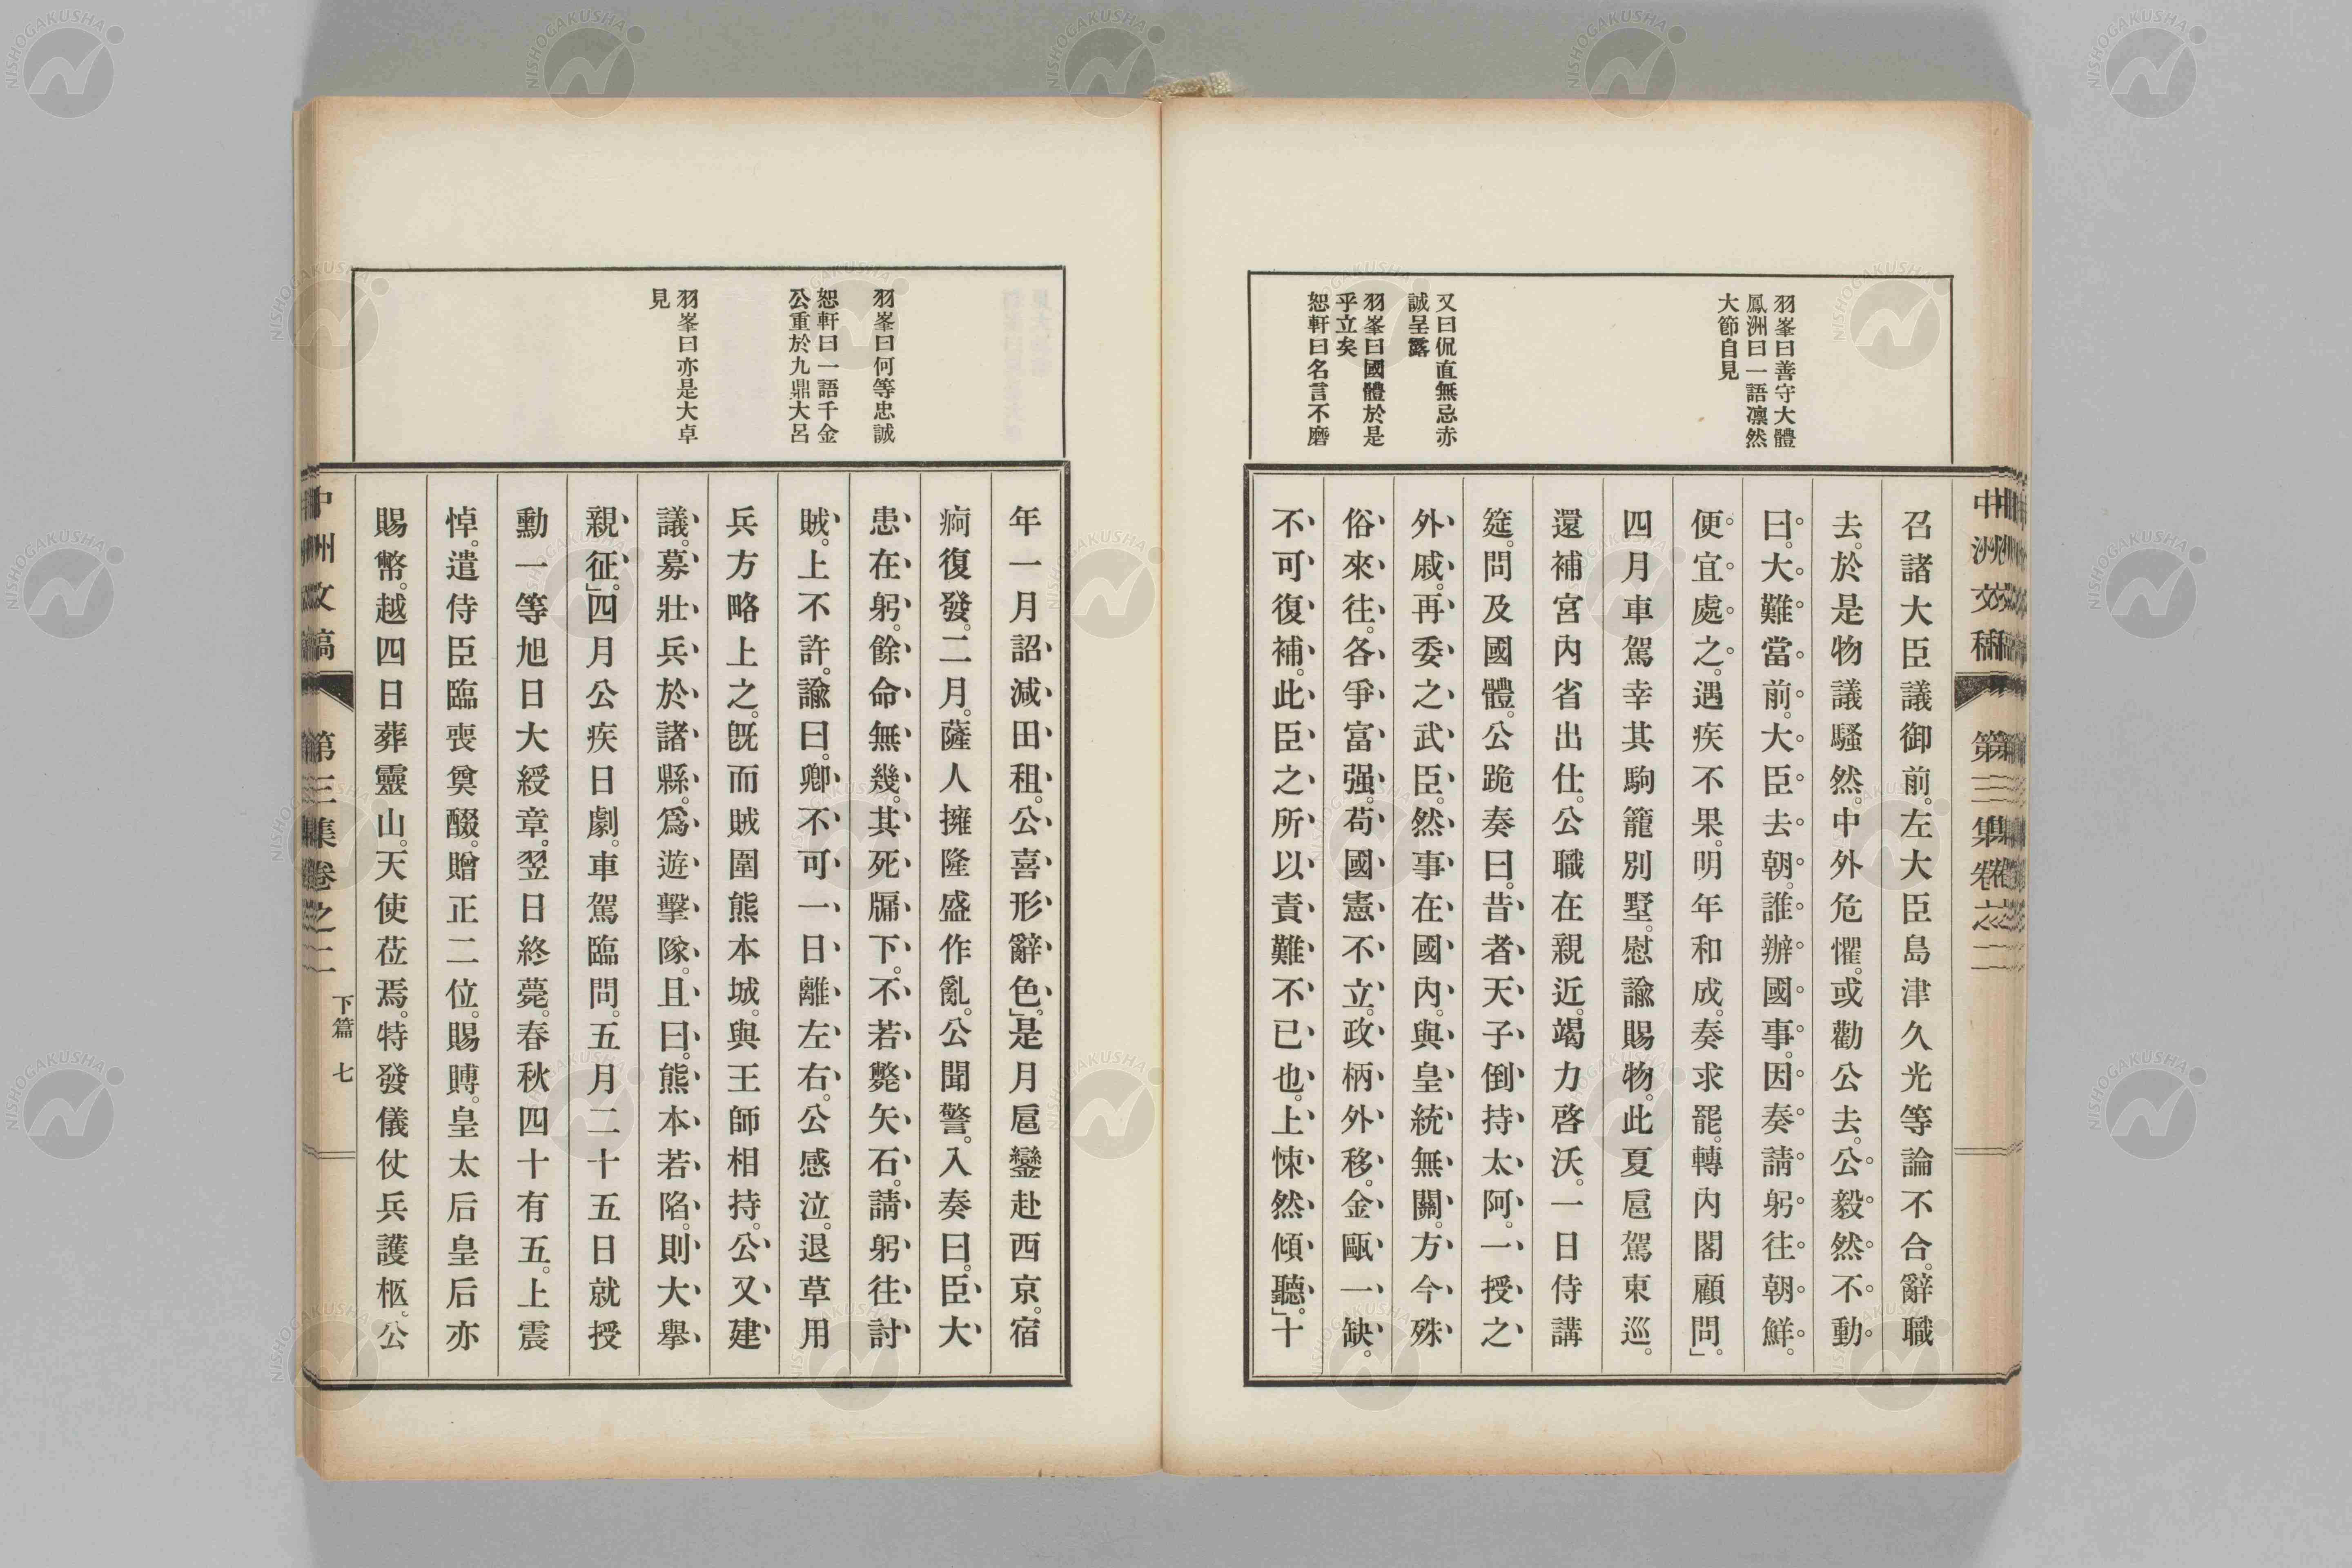 中洲文稿　第三集卷之二
羽峯曰善守大體
鳳洲曰一語凜然
大節自見
又曰侃直無忌赤
誠呈露
羽峯曰國體於是
乎立矣
恕軒曰名言不磨
召諸大臣議御前。左大臣島津久光等論不合。辭職
去。於是物議騷然。中外危懼。或勸公去。公毅然不動
曰。大難當前。大臣去朝。誰辦國事。因奏請躬往朝鮮。
便宜處之。遇疾不果。明年和成。奏求罷。轉內閣顧問。」
四月車駕幸其駒籠別墅。慰諭賜物。此夏扈駕東巡。
還補宮內省出仕。公職在親近。竭力啓沃。一日侍講
筵。問及國體。公跪奏曰。昔者天子倒持太阿。一授之
外戚。再委之武臣。然事在國內。與皇統無關。方今殊
俗來往。各爭富强。苟國憲不立。政柄外移。金甌一缺。
不可復補。此臣之所以責難不已也。上悚然傾聽。」十
羽峯曰何等忠誠
恕軒曰一語千金
公重於九鼎大呂
羽峯曰亦是大卓
見
年一月詔減田租。公喜形辭色。」是月扈鑾赴西京。宿
痾復發。二月。薩人擁隆盛作亂。公聞警。入奏曰。臣大
患在躬。餘命無幾。其死牖下。不若斃矢石。請躬往討
賊。上不許。諭曰。卿不可一日離左右。公感泣。退草用
兵方略上之。旣而賊圍熊本城。與王師相持。公又建
議。募壯兵於諸縣。爲遊擊隊。且曰。熊本若陷。則大擧
親征。」四月公疾日劇。車駕臨問。五月二十五日就授
勳一等旭日大綬章。翌日終薨。春秋四十有五。上震
悼。遣侍臣臨喪奠醊。贈正二位。賜賻。皇太后皇后亦
賜幣。越四日葬靈山。天使莅焉。特發儀仗兵護柩。公
中洲文稿　第三集卷之二　下篇　七